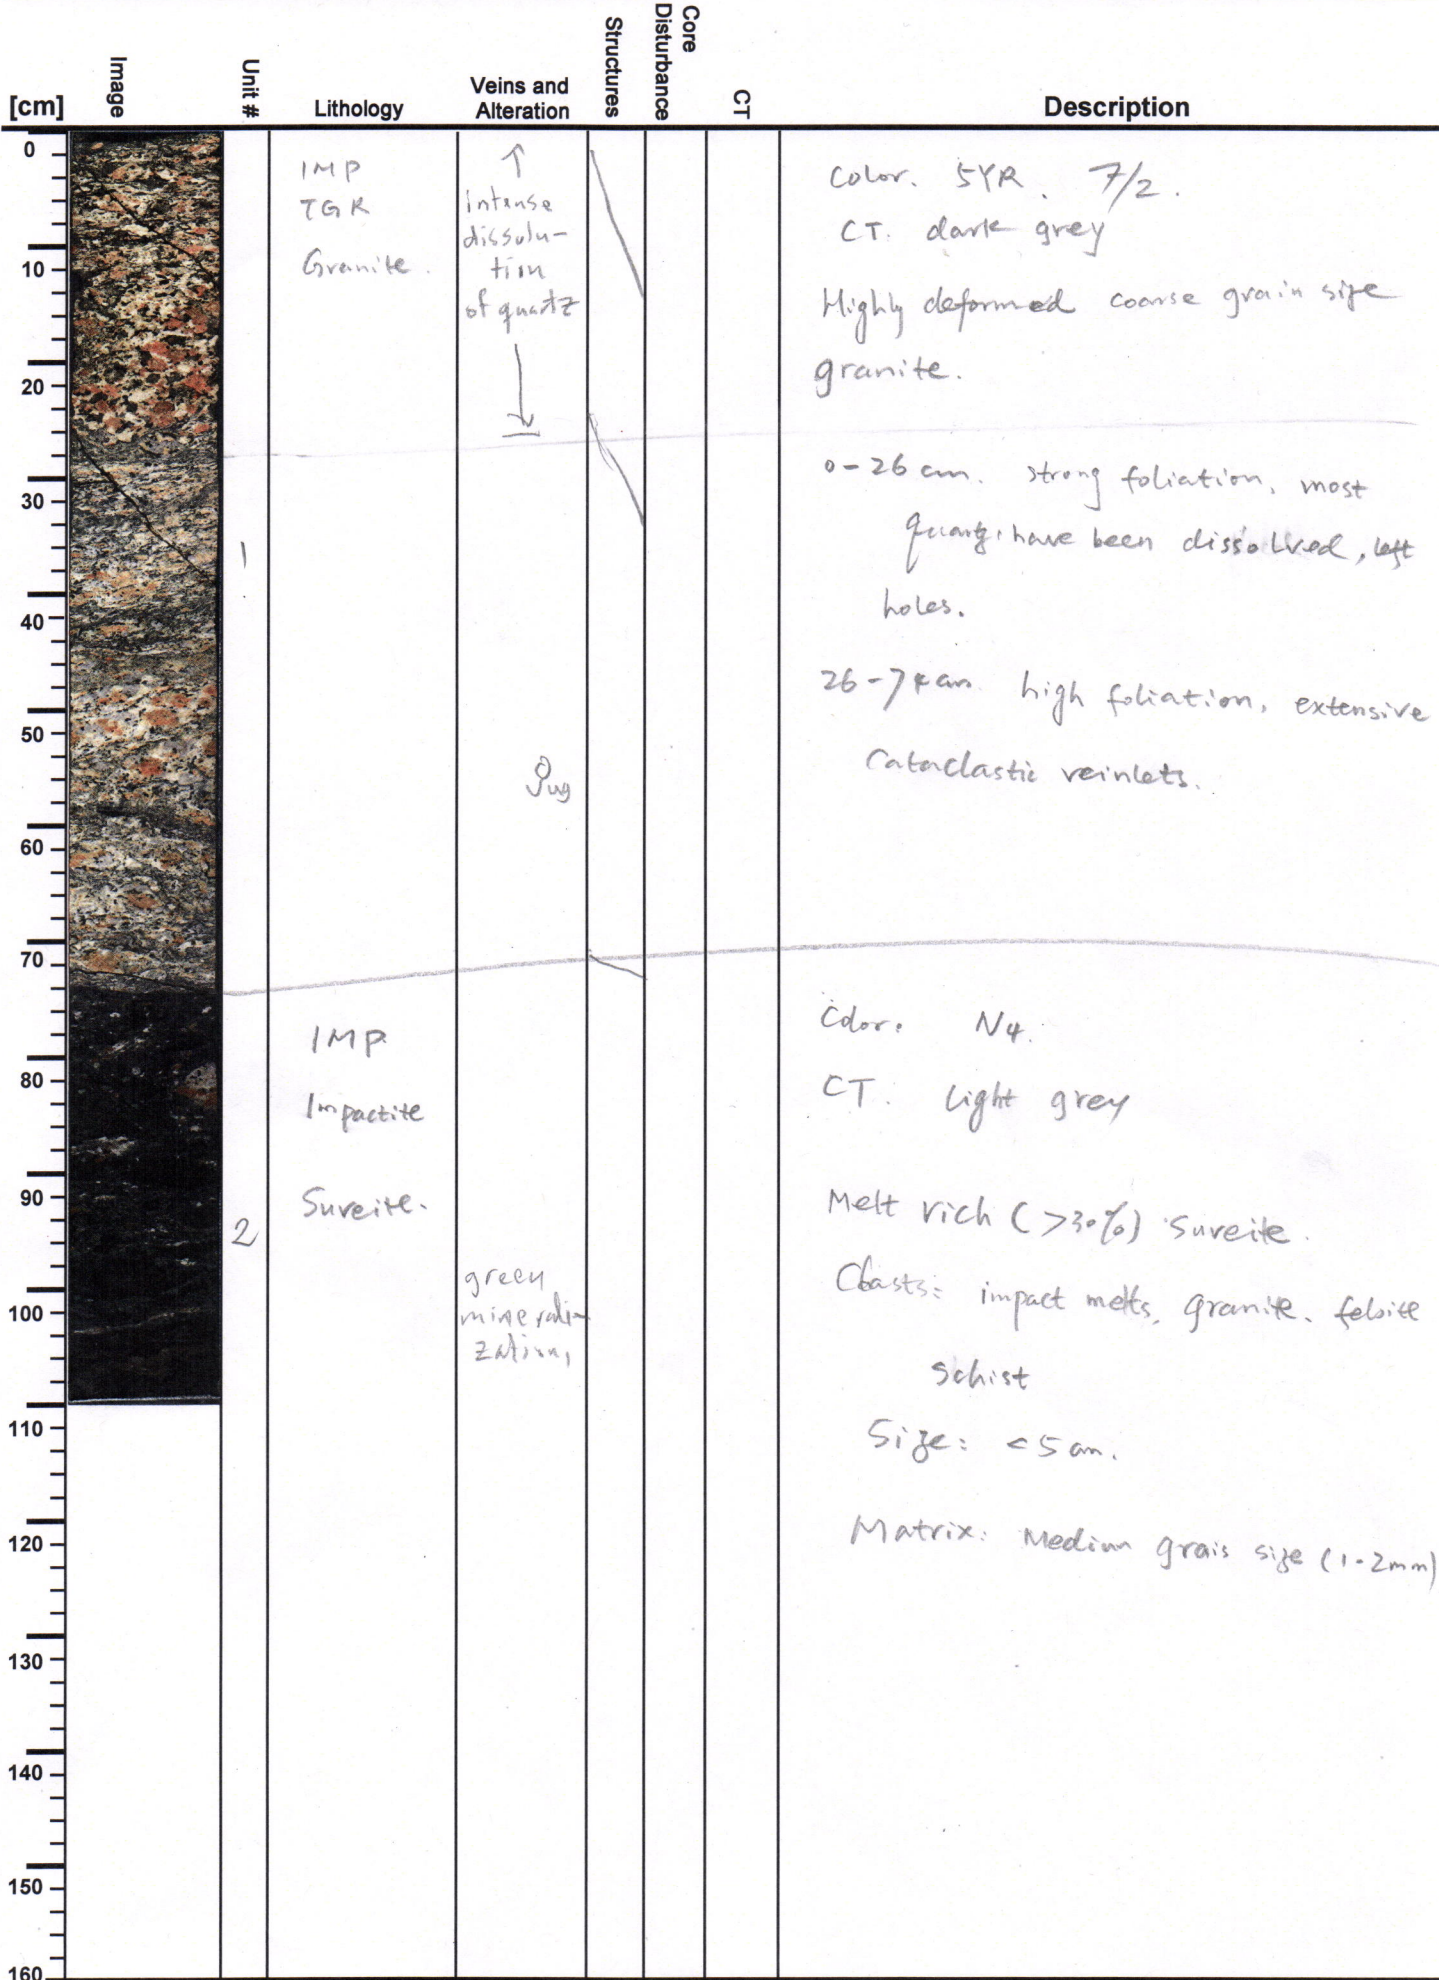 [cm]
Image
Unit #
Lithology
Veins and
Alteration
Structures
Core
Disturbance
CT
Description
0
10
20
30
40
50
60
70
80
90
100
110
120
130
140
150
160
1
IMP
TGR
Granite.
intense
dissolu-
tion
of quartz
Vug
Color. 5YR. 7/2.
CT. dark grey
Highly deformed coarse grain size
granite.
0-26 cm. strong foliation, most
quartz have been dissolved, left
holes.
26-74cm. high foliation, extensive
Cataclastic veinlets.
2
IMP.
Impactite
Sureite.
green
minerali-
zation,
Color: N4.
CT. light grey
Melt rich (>30%) Sureite.
Clasts: impact melts, granite, felsite
schist
Size: <5 cm.
Matrix: Medium grais size (1-2mm)